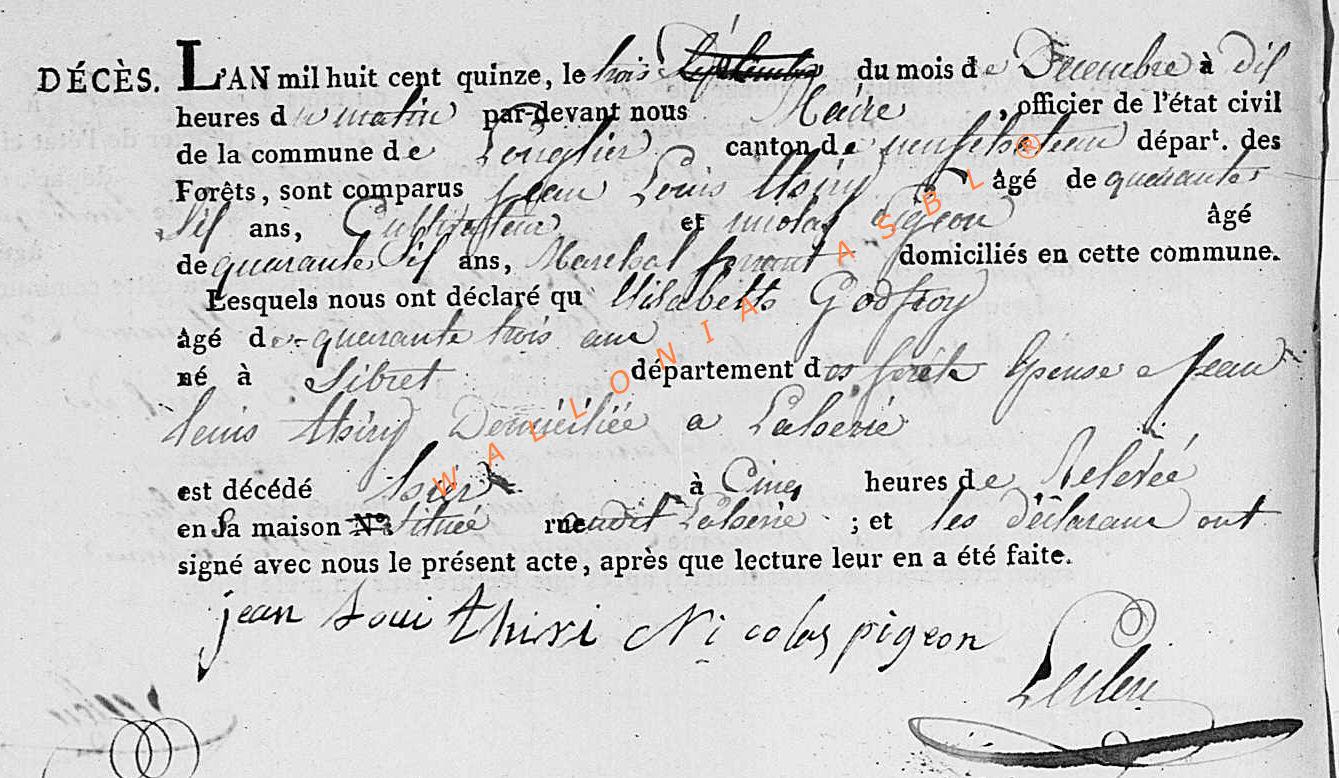 DÉCÈS. L'AN mil huit cent quinze, le trois Septembre du mois de Decembre à dix
heures du matin par-devant nous Maire, officier de l'état civil
de la commune de Longlier canton de neufchateau départ. des
Forêts, sont comparus jean Louis thiry âgé de quarante
Six ans, Cultivateur et nicolas pigeon âgé
de quarante Six ans, Marchal ferrant domiciliés en cette commune.
Lesquels nous ont déclaré qu Elisabeth Godfroy
âgé de quarante trois ans
né à Sibret département des forêts Epouse a jean
louis thiry Domiciliée a Lahérie
est décédé hier à Cinq heures de Relevée
en Sa maison N.º Située rue audit Lahérie ; et les déclarans ont
signé avec nous le présent acte, après que lecture leur en a été faite.
jean Loui thiri Nicolas pigeon
WALLONIA ASBL ®